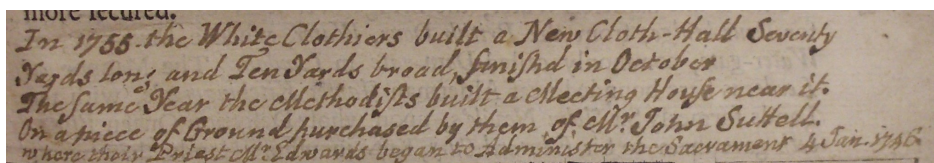 more secured.
In 1755 the White Clothiers built a New Cloth-Hall Seventy
Yards long and Ten Yards broad, finiſhd in October
The ſame Year the Methodiſts built a Meeting Houſe near it.
On a piece of Ground purchased by them of Mr. John Suttell.
where their Prieſt Mr. Edwards began to Adminiſter the Sacrament 4 Jan. 1756